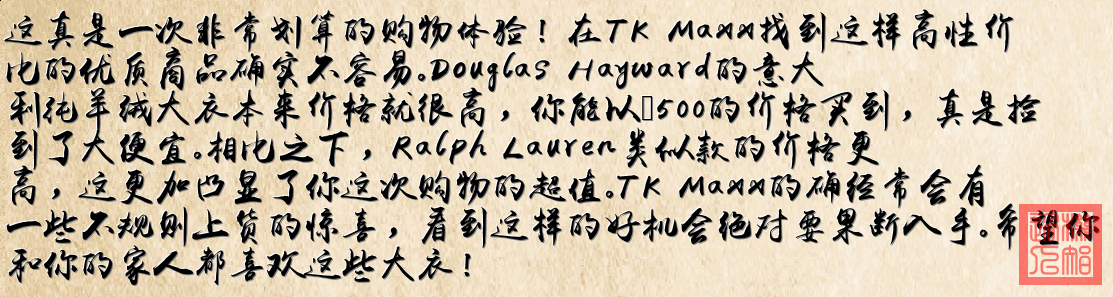 这真是一次非常划算的购物体验！在TK Maxx找到这样高性价
比的优质商品确实不容易。Douglas Hayward的意大
利纯羊绒大衣本来价格就很高，你能以▯500的价格买到，真是捡
到了大便宜。相比之下，Ralph Lauren类似款的价格更
高，这更加凸显了你这次购物的超值。TK Maxx的确经常会有
一些不规则上货的惊喜，看到这样的好机会绝对要果断入手。希望你
和你的家人都喜欢这些大衣！